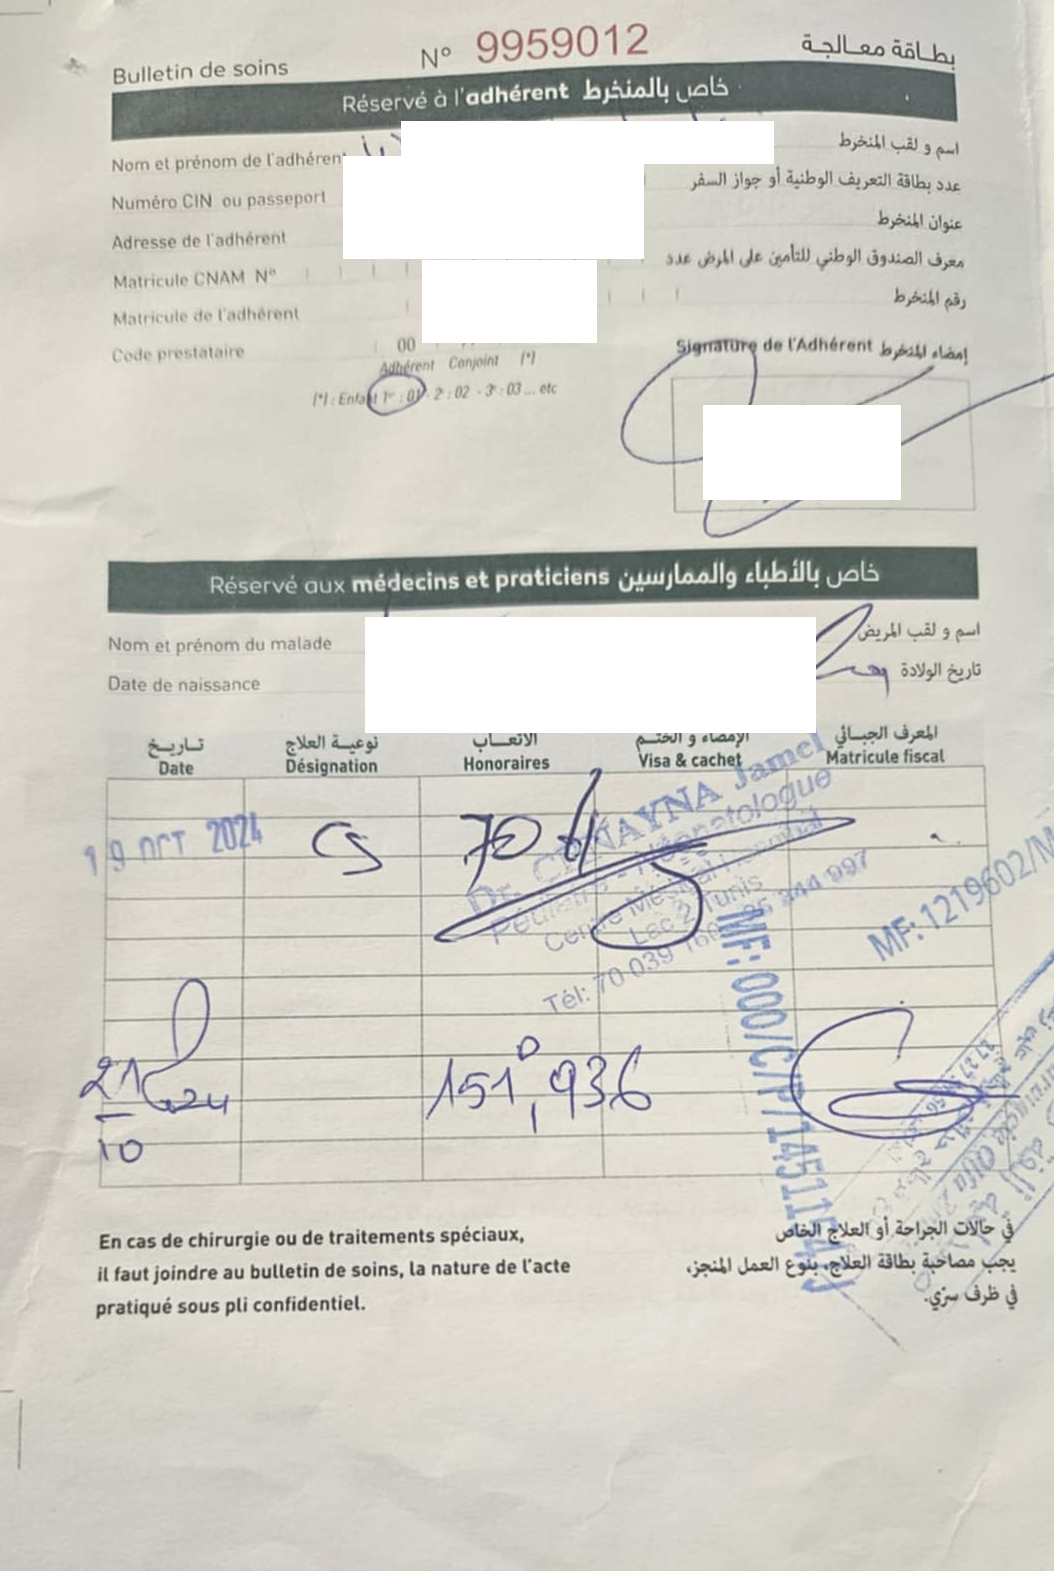 Bulletin de soins N° 9959012 بطاقة معالجة
Réservé à l'adhérent خاص بالمنخرط
Nom et prénom de l'adhérent اسم و لقب المنخرط
Numéro CIN ou passeport عدد بطاقة التعريف الوطنية أو جواز السفر
Adresse de l'adhérent عنوان المنخرط
Matricule CNAM N° معرف الصندوق الوطني للتأمين على المرض عدد
Matricule de l'adhérent رقم المنخرط
Code prestataire 00
Adhérent Conjoint (*)
(*) : Enfant 1er : 01 - 2e : 02 - 3e : 03 ... etc
Signature de l'Adhérent إمضاء المنخرط
Réservé aux médecins et praticiens خاص بالأطباء والممارسين
Nom et prénom du malade اسم و لقب المريض
Date de naissance تاريخ الولادة
تـاريـخ نوعيـة العلاج الأتعـاب الإمضاء و الختـم المعرف الجبـائي
Date Désignation Honoraires Visa & cachet Matricule fiscal
19 OCT 2024 CS 70
Jamel
Pédiatre - Néonatologue
Lac 2 Tunis
Tél: 70 039
MF: 1219602/M
MF: 000/C/P/1451
21 24
10
151D,936
En cas de chirurgie ou de traitements spéciaux,
il faut joindre au bulletin de soins, la nature de l'acte
pratiqué sous pli confidentiel.
في حالات الجراحة أو العلاج الخاص
يجب مصاحبة بطاقة العلاج، بنوع العمل المنجز،
في ظرف سرّي.